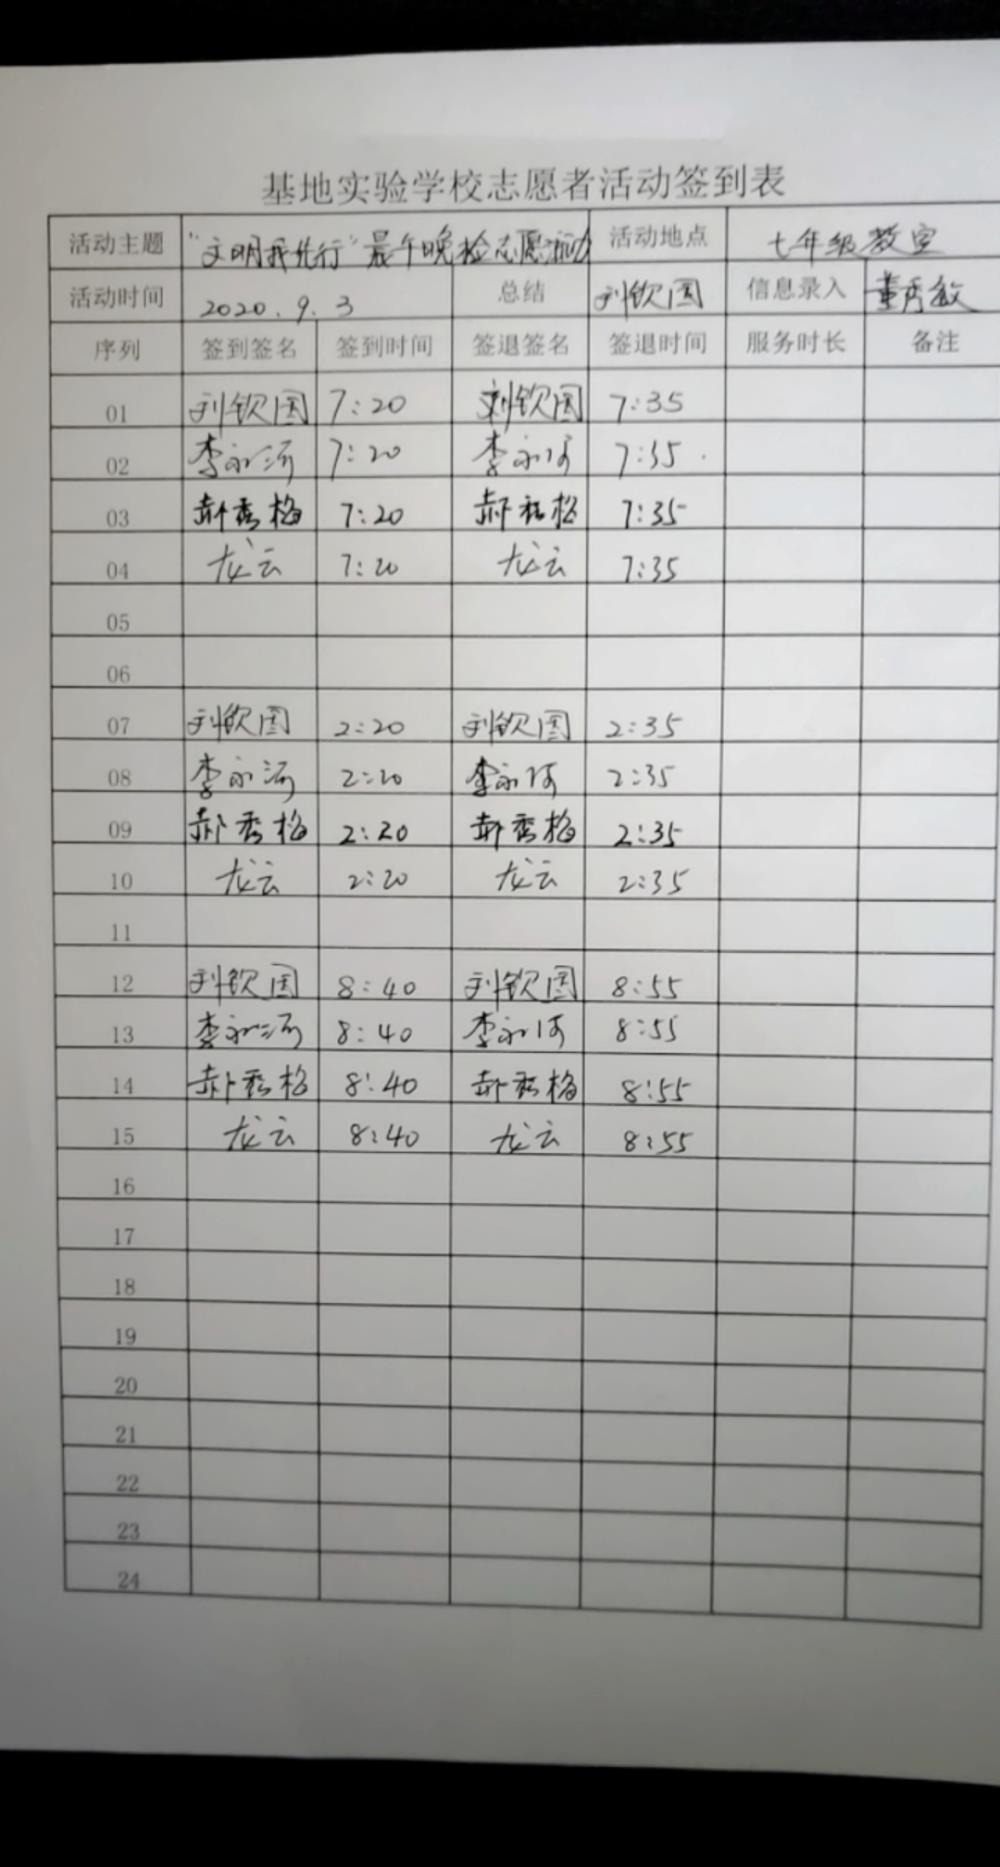 基地实验学校志愿者活动签到表
活动主题 "文明我先行"晨午晚检志愿活动 活动地点 七年级教室
活动时间 2020.9.3 总结 刘钦国 信息录入 董秀敏
序列 签到签名 签到时间 签退签名 签退时间 服务时长 备注
01 刘钦国 7:20 刘钦国 7:35
02 李永河 7:20 李永河 7:35
03 郝秀梅 7:20 郝秀梅 7:35
04 龙云 7:20 龙云 7:35
05
06
07 刘钦国 2:20 刘钦国 2:35
08 李永河 2:20 李永河 2:35
09 郝秀梅 2:20 郝秀梅 2:35
10 龙云 2:20 龙云 2:35
11
12 刘钦国 8:40 刘钦国 8:55
13 李永河 8:40 李永河 8:55
14 郝秀梅 8:40 郝秀梅 8:55
15 龙云 8:40 龙云 8:55
16
17
18
19
20
21
22
23
24